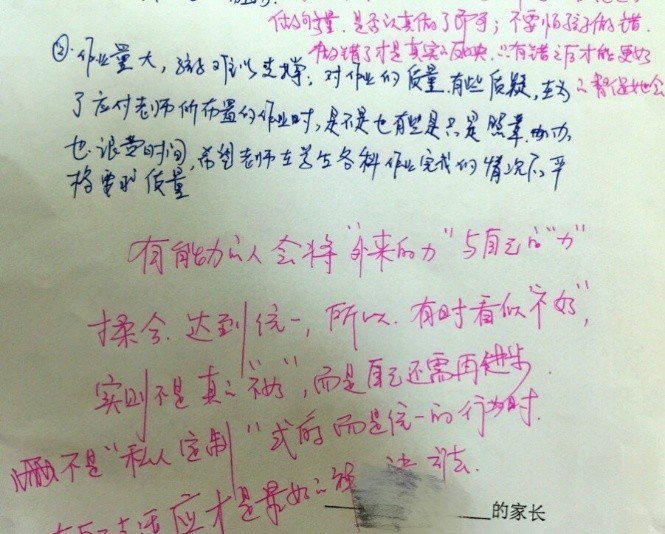 做的量,是否认真做了即可;不要怕孩子做错.
做错了才是真实的反映,只有错了后才能更好
②.作业量大,孩子难以支撑;对作业的质量有些质疑,在为
了应付老师所布置的作业时,是不是也有些是只是照章办办,
也浪费时间,希望老师在学生各科作业完成的情况下,平
质量
有能力的人会将“外来的力”与自己的“力”
揉合.达到统一,所以.有时看似“不好”,
实则不是真的“不好”,而是自己还需再进步.
不是“私人定制”式的 而是统一的行为时.
应才是最好的 方法.
的家长